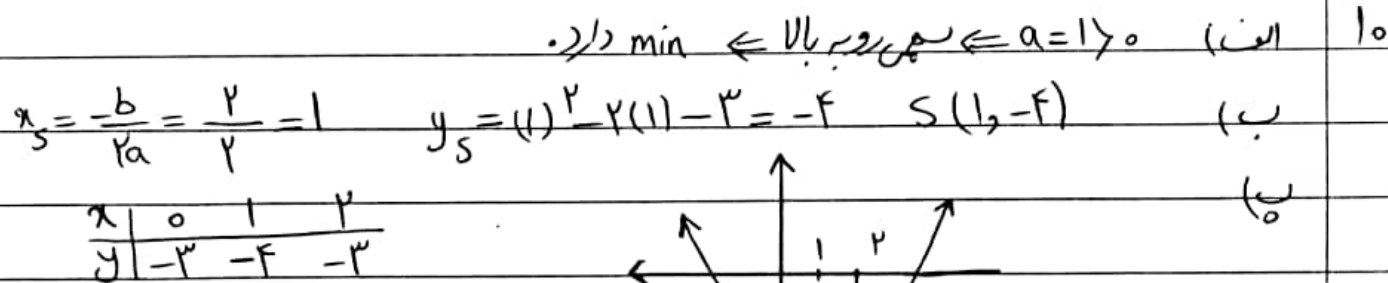 ۱۰ الف) a=۱>۰ ⇒ سهمی رو به بالا ⇒ min دارد.
ب) x_s = -b/۲a = ۲/۲ = ۱   y_s = (۱)^۲ - ۲(۱) - ۳ = -۴   S(۱, -۴)
پ)
x | ۰ ۱ ۲
y | -۳ -۴ -۳
۱ ۲